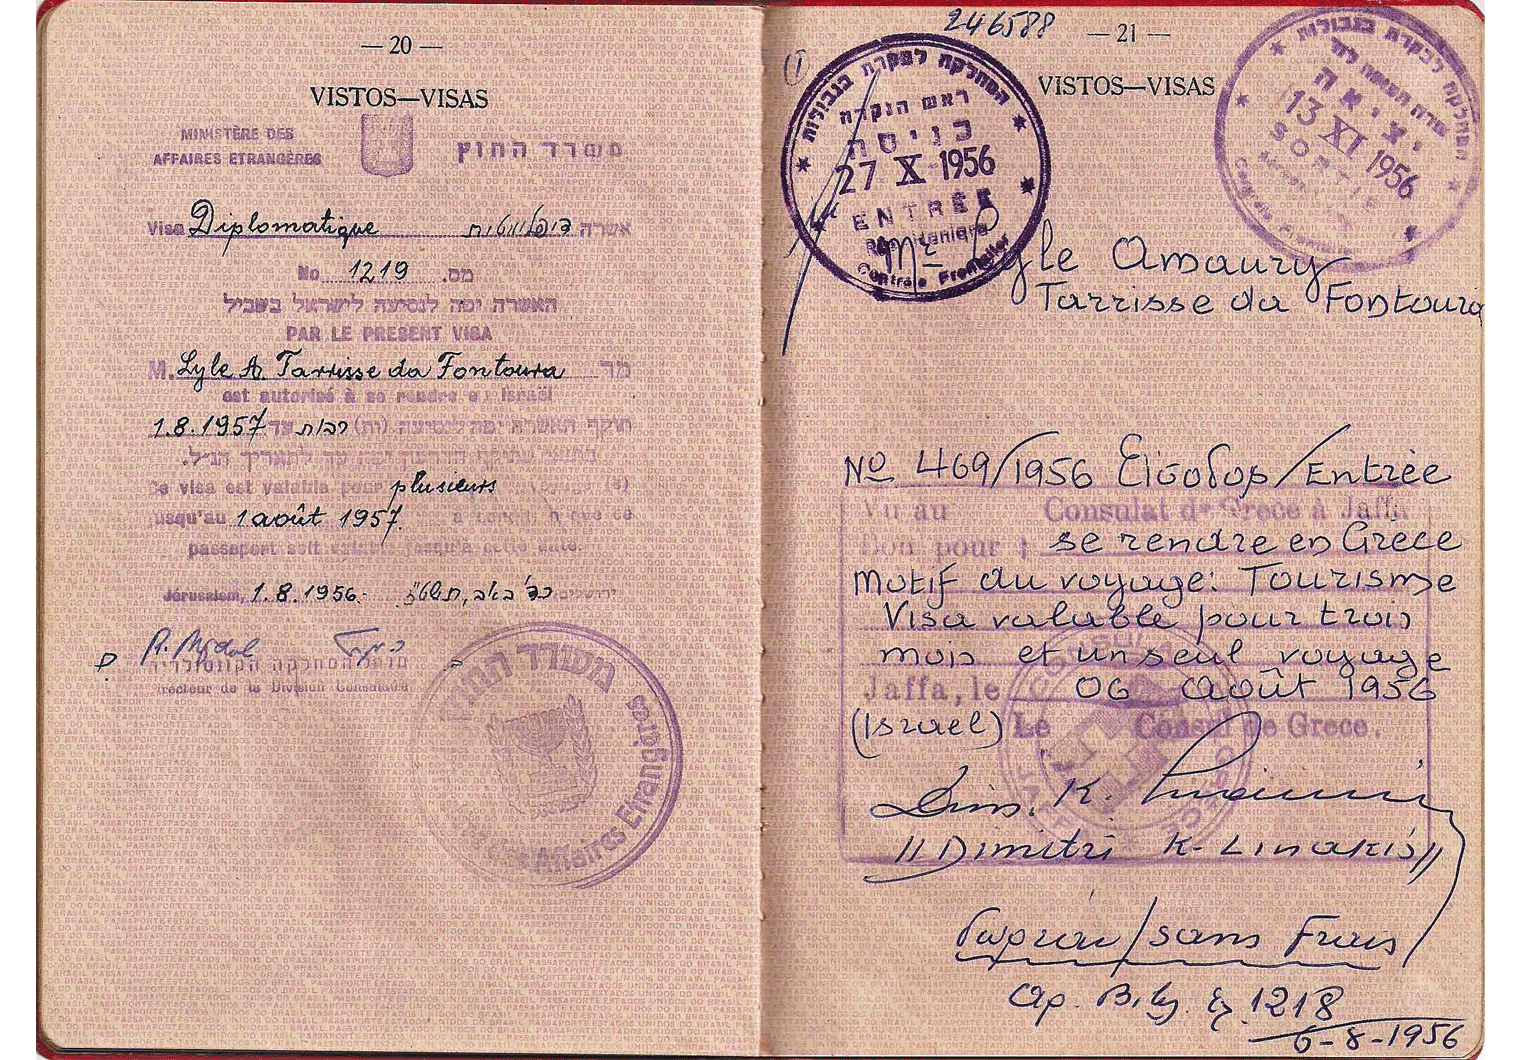 — 20 —
VISTOS—VISAS
MINISTÈRE DES
AFFAIRES ETRANGÈRES
משרד החוץ
Visa Diplomatique דיפלומטית אשרה
No 1219 מס.
האשרה יפה לנסיעה לישראל בשביל
PAR LE PRESENT VISA
M. Lyle A. Tarrisse da Fontoura מר
est autorisé à se rendre en Israël
1.8.1957
Ce visa est valable pour plusieurs
jusqu'au 1 août 1957.
passeport soit valable jusqu'à cette date.
Jérusalem, 1.8.1956.- ירושלים
מנהל המחלקה הקונסולרית
Directeur de la Division Consulaire
משרד החוץ
des Affaires Etrangères
246588
— 21 —
VISTOS—VISAS
המחלקה לבקרת הגבולות
ראש הנקרה
כניסה
27 X 1956
ENTRÉE
Contrôle Frontalier
המחלקה לבקרת הגבולות
יציאה
13 XI 1956
SORTIE
Mr Lyle Amaury
Tarrisse da Fontoura
No 469/1956 Είσοδος/Entrée
Vu au Consulat de Grece à Jaffa
Bon pour : se rendre en Grèce
Motif du voyage: Tourisme
Visa valable pour trois
mois et un seul voyage
Jaffa, le 06 août 1956
(Israel) Le Consul de Grece.
"Dimitri K. Linakis"
Δωρεάν/sans Frais
1218
6-8-1956